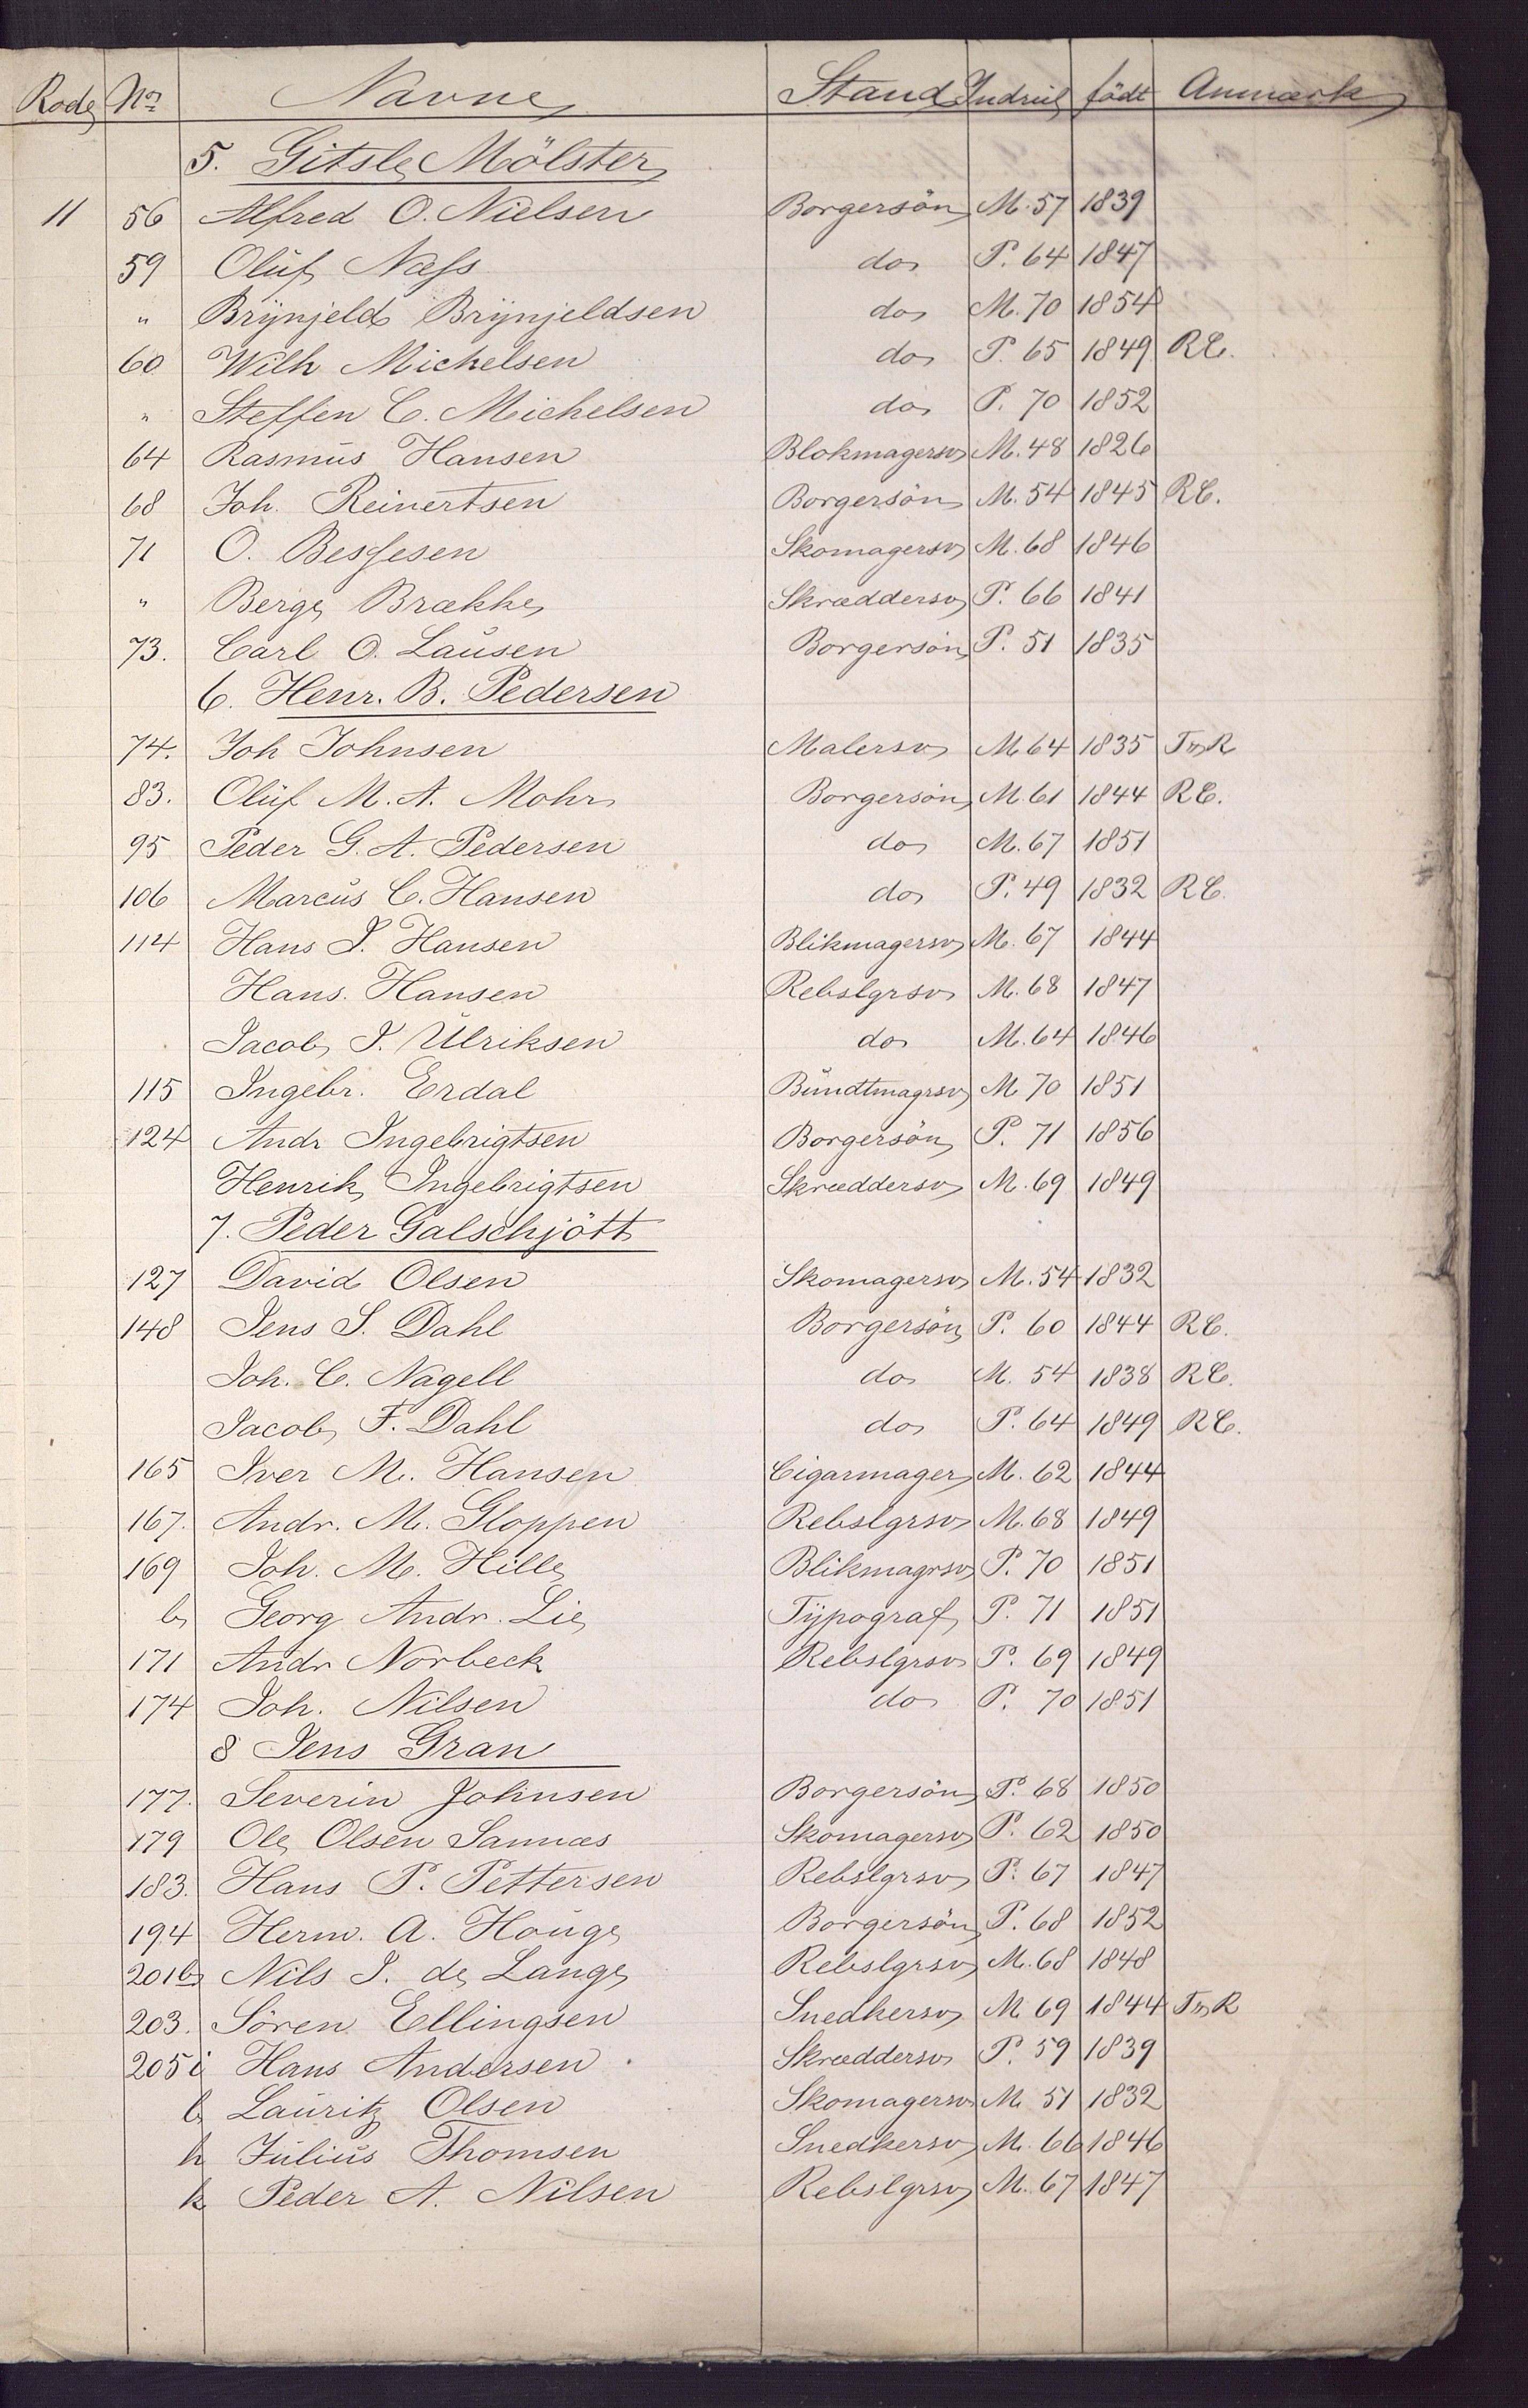 Rode No. Navne Stand Indrul födt Anmærk
5. Gitsle Mölster
11 56 Alfred O. Nielsen Borgersön M. 57 1839
59 Oluf Næss do P. 64 1847
" Brynjeld Brynjeldsen do M. 70 1854
60 Wilh Michelsen do P. 65 1849 RC.
" Steffen C. Michelsen do P. 70 1852
64 Rasmus Hansen Blokmagersv M. 48 1826
68 Joh. Reinertsen Borgersön M. 54 1845 RC.
71 O. Skomagersv M. 68 1846
" Berge Brække Skræddersv P. 66 1841
73. Carl O. Lausen Borgersön P. 51 1835
6. Henr. B. Pedersen
74. Joh Johnsen Malersv M 64 1835 R
83. Oluf M. A. Mohr Borgersön M. 61 1844 RC.
95 Peder G. A. Pedersen do M. 67 1851
106 Marcus C. Hansen do P. 49 1832 RC.
114 Hans J. Hansen Blikmagersv M. 67 1844
Hans. Hansen Rebslgrsv M. 68 1847
Jacob J. Ulriksen do M. 64 1846
115 Ingebr. Erdal Bundtmagrsv M 70 1851
124 Andr Ingebrigtsen Borgersön P. 71 1856
Henrik Ingebrigtsen Skræddersv M. 69 1849
7. Peder Galschjött
127 David Olsen Skomagersv M. 54 1832
148 Jens S. Dahl Borgersön P. 60 1844 RC.
Joh. C. Nagell do M. 54 1838 RC.
Jacob F. Dahl do P. 64 1849 RC.
165 Iver M. Hansen Cigarmager M. 62 1844
167. Andr. M. Gloppen Rebslgrsv M. 68 1849
169 Joh. M. Hille Blikmagrsv P. 70 1851
b Georg Andr. Lie Typograf P. 71 1851
171 Andr Norbeck Rebslgrsv P. 69 1849
174 Joh. Nilsen do P. 70 1851
8 Jens Gran
177. Severin Johnsen Borgersön P. 68 1850
179 Ole Olsen Sannæs Skomagersv P. 62 1850
183. Hans P. Pettersen Rebslgrsv P. 67 1847
194 Herm. A. Houge Borgersön P. 68 1852
201b Nils J. de Lange Rebslgrsv M. 68 1848
203. Sören Ellingsen Snedkersv M 69 1844 R
205 i Hans Andersen Skræddersv P. 59 1839
b Lauritz Olsen Skomagersv M. 51 1832
h Julius Thomsen Snedkersv M. 66 1846
k Peder A. Nilsen Rebslgrsv M. 67 1847